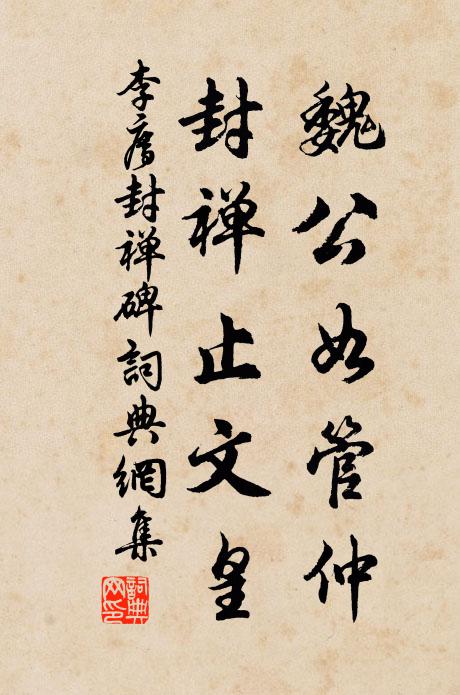 魏公如管仲
封禅止文皇
李廌封禅碑詞典網集
詞典网印